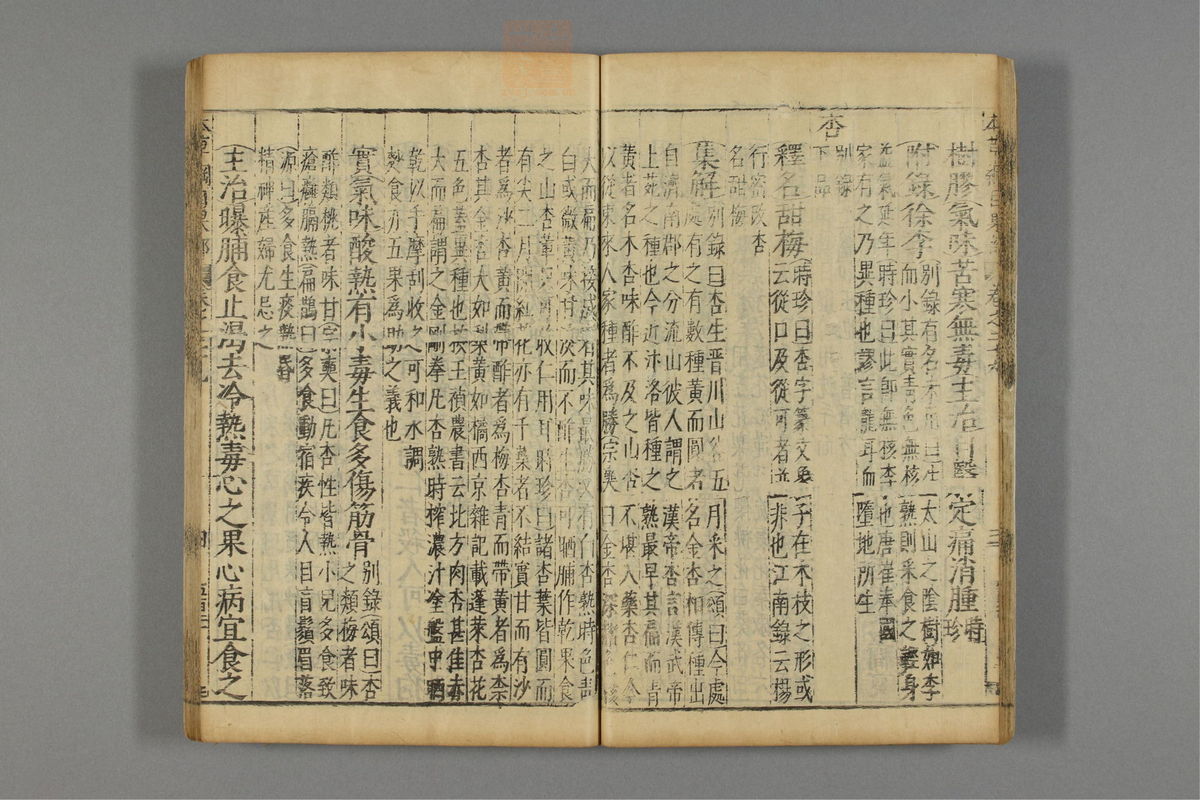 樹膠氣味苦寒無毒主治目翳定痛消腫時
珍
附錄徐李別錄有名未用曰生太山之陰樹如李
而小其實青色無核熟則采食之輕身
益氣延年時珍曰此即無核李也唐崔奉國
家有之乃異種也謬言龍耳血墮地所生
別錄
下品
杏
釋名甜梅時珍曰杏字篆文象子在木枝之形或
云從口及從可者並非也江南錄云楊
行密改杏
名甜梅
集解別錄曰杏生晉川山谷五月采之頌曰今處
處有之有數種黃而圓者名金杏相傳種出
自濟南郡之分流山彼人謂之漢帝杏言漢武帝
上苑之種也今近汴洛皆種之熟最早其扁而青
黃者名木杏味酢不及之山杏不堪入藥杏仁今
以從東來人家種者為勝宗奭曰金杏深赭色核
大而扁乃接成者其味最勝又有白杏熟時色青
白或微黃味甘淡而不酢生杏可晒脯作乾果食
之山杏輩只可收仁用耳時珍曰諸杏葉皆圓而
有尖二月開紅花亦有千葉者不結實甘而有沙
者為沙杏黃而帶酢者為梅杏青而帶黃者為柰
杏其金杏大如梨黃如橘西京雜記載蓬萊杏花
五色蓋異種也按王禎農書云北方肉杏甚佳赤
大而扁謂之金剛拳凡杏熟時搾濃汁塗盤中晒
乾以手摩刮收之可和水調
麨食亦五果為助之義也
實氣味酸熱有小毒生食多傷筋骨別錄頌曰杏
之類梅者味
酢類桃者味甘宗奭曰凡杏性皆熱小兒多食致
瘡癰膈熱扁鵲曰多食動宿疾令人目盲鬚眉落
源曰多食生痰熱昏
精神產婦尤忌之
主治曝脯食止渴去冷熱毒心之果心病宜食之